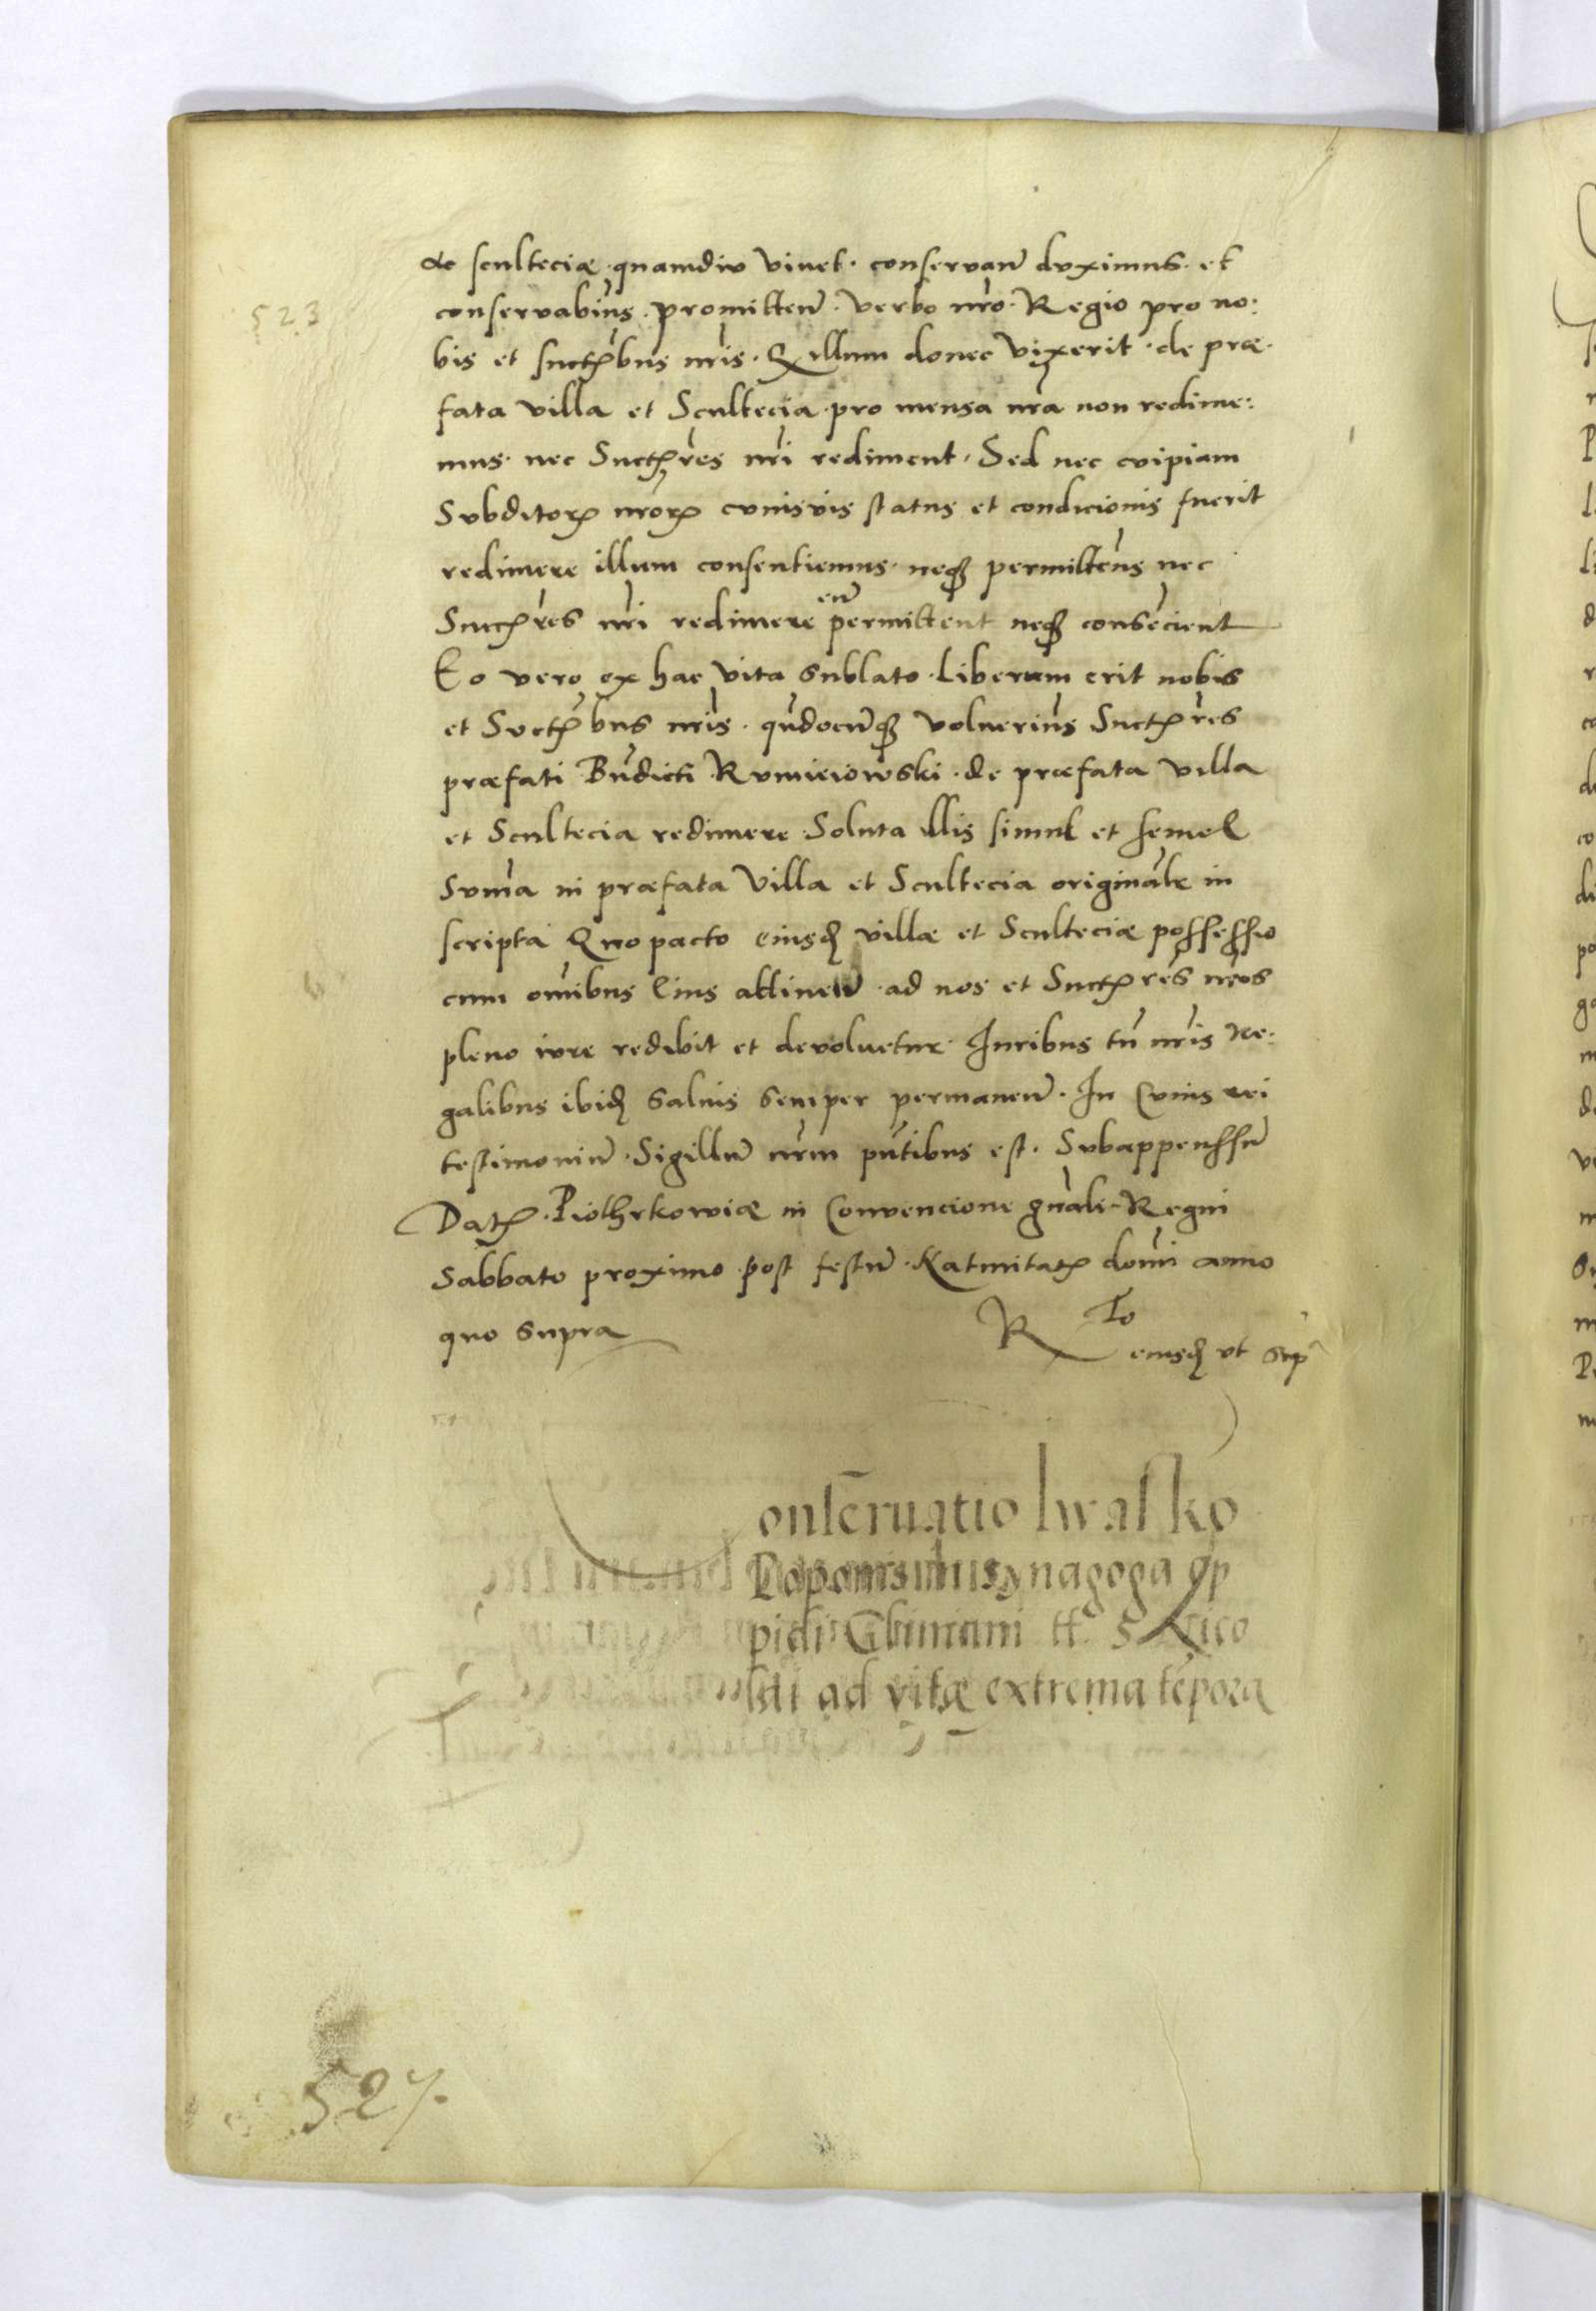 de scultecia quamdiu vivet. conservan̄ duximus. et
523
conservabim̄s. promitten̄. verbo nr̄o. Regio pro no:
bis et succꝫbus nr̄is. Q illum donec vixerit. de præ.
fata villa et Scultecia pro mensa nr̄a non redime:
mus. nec Succꝫres nr̄i rediment. Sed nec cuipiam
Subditorꝝ nr̄orꝝ cuiusvis status et condicionis fuerit
redimere illum consentiemus. neqꝫ permittem̄s nec
Succꝫres nr̄i redimere eū permittent neqꝫ consecient
Eo vero ex hac vita sublato. Liberum erit nobis
et Succꝫbus nr̄is. qn̄docūqꝫ voluerim̄s Succꝫres
præfati Bn̄dicti Rvmieiowski. de præfata villa
et Scultecia redimere. Soluta illis simul et semel
Sum̄a in præfata Villa et Scultecia originale in
scripta Quo pacto eiusdꝫ villæ et Scultecie possessio
cum om̄ibus Eius attinen̄. ad nos et Succꝫres nr̄os
pleno iure redibit et devoluetur. Iuribus tn̄ nr̄is Re:
galibus ibidꝫ salvis semper permanen̄. In Cuius rei
testimoniū. Sigillū nr̄m pn̄tibus est. Subappenssū
Datꝫ. Piothrkowiæ in Convencione gn̄ali. Regni
Sabbato proximo post festū. Natiuitatꝫ dom̄i anno
quo supra
R To
eiusdꝫ vt sup
onser̄uatio Iwasko
Poponi synagoga op
pidi
ad vitæ extrema tēpora
527.